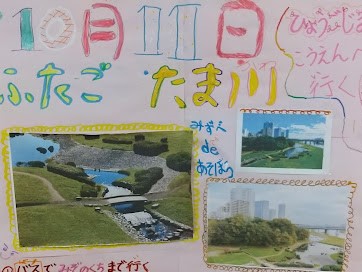 10月11日
ふたごたま川
こうえん
行く
みず人
de
あそぼう
バスでみぞのくちまで行く